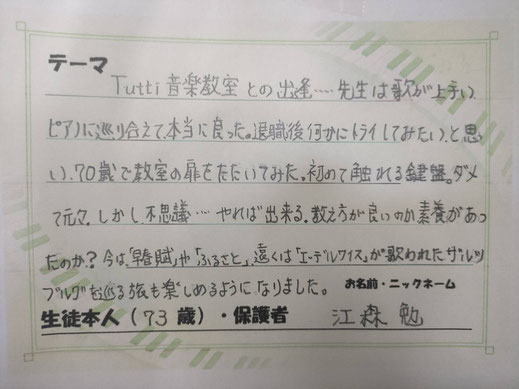 テーマ
Tutti 音楽教室 との 出逢…‥先生は歌が上手い
ピアノに巡り合えて、本当に良った。退職後何かにトライしてみたい、と思
い、70歳で教室の扉をたたいてみた。初めて触れる鍵盤。ダメ
て元々、しかし不思議…やれば出来る。教え方が良いのか素養があっ
たのか?今は、「早春賦」や「ふるさと」、遠くは「エーデルワイス」が歌われたザルツ
ブルグを巡る旅も楽しめるようになりました。
お名前・ニックネーム
生徒本人(73歳)・保護者 江森 勉